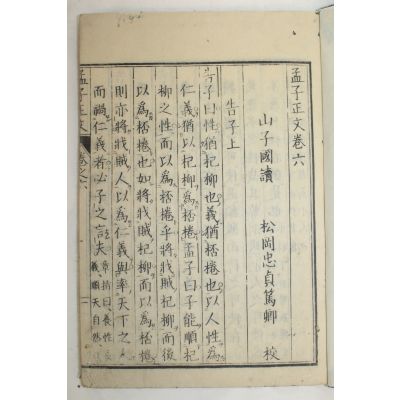 孟子正文卷六
山子國讀 松岡忠貞篤卿 校
告子上
告子曰性猶杞柳也義猶桮棬也以人性為
仁義猶以杞柳為桮棬孟子曰子能順杞
柳之性而以為桮棬乎將戕賊杞柳而後
以為桮棬也如將戕賊杞柳而以為桮棬
則亦將戕賊人以為仁義與率天下之人
而禍仁義者必子之言夫 章指曰養性長義順天自然
孟子正文 卷之六 一